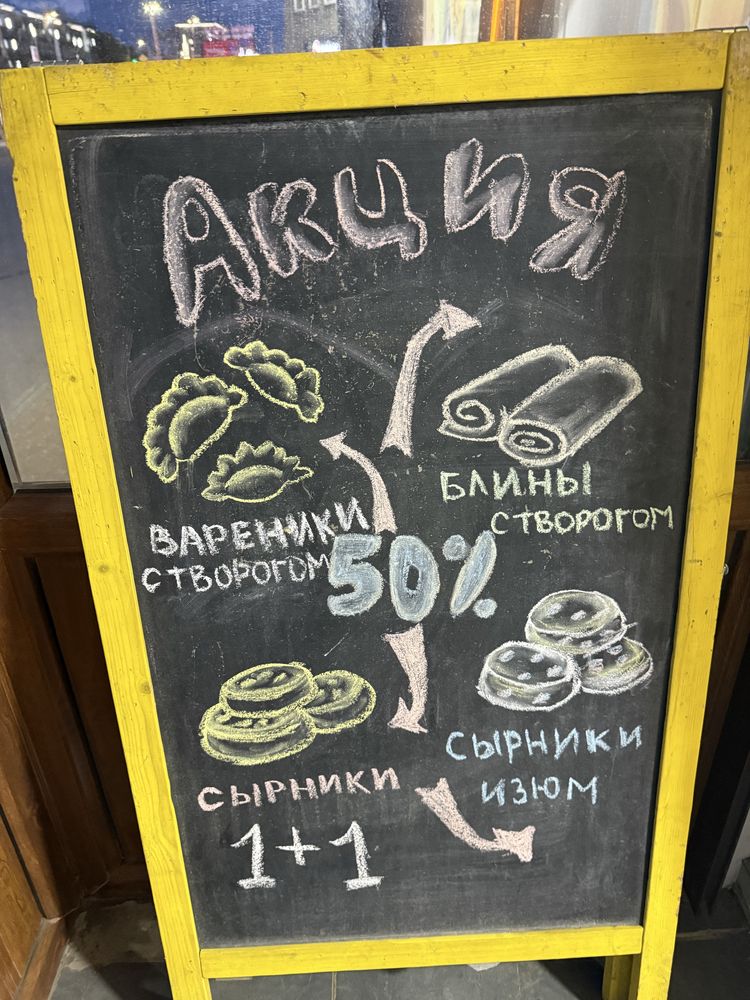 Акция
ВАРЕНИКИ
С ТВОРОГОМ
БЛИНЫ
С ТВОРОГОМ
50%
СЫРНИКИ
1+1
СЫРНИКИ
ИЗЮМ